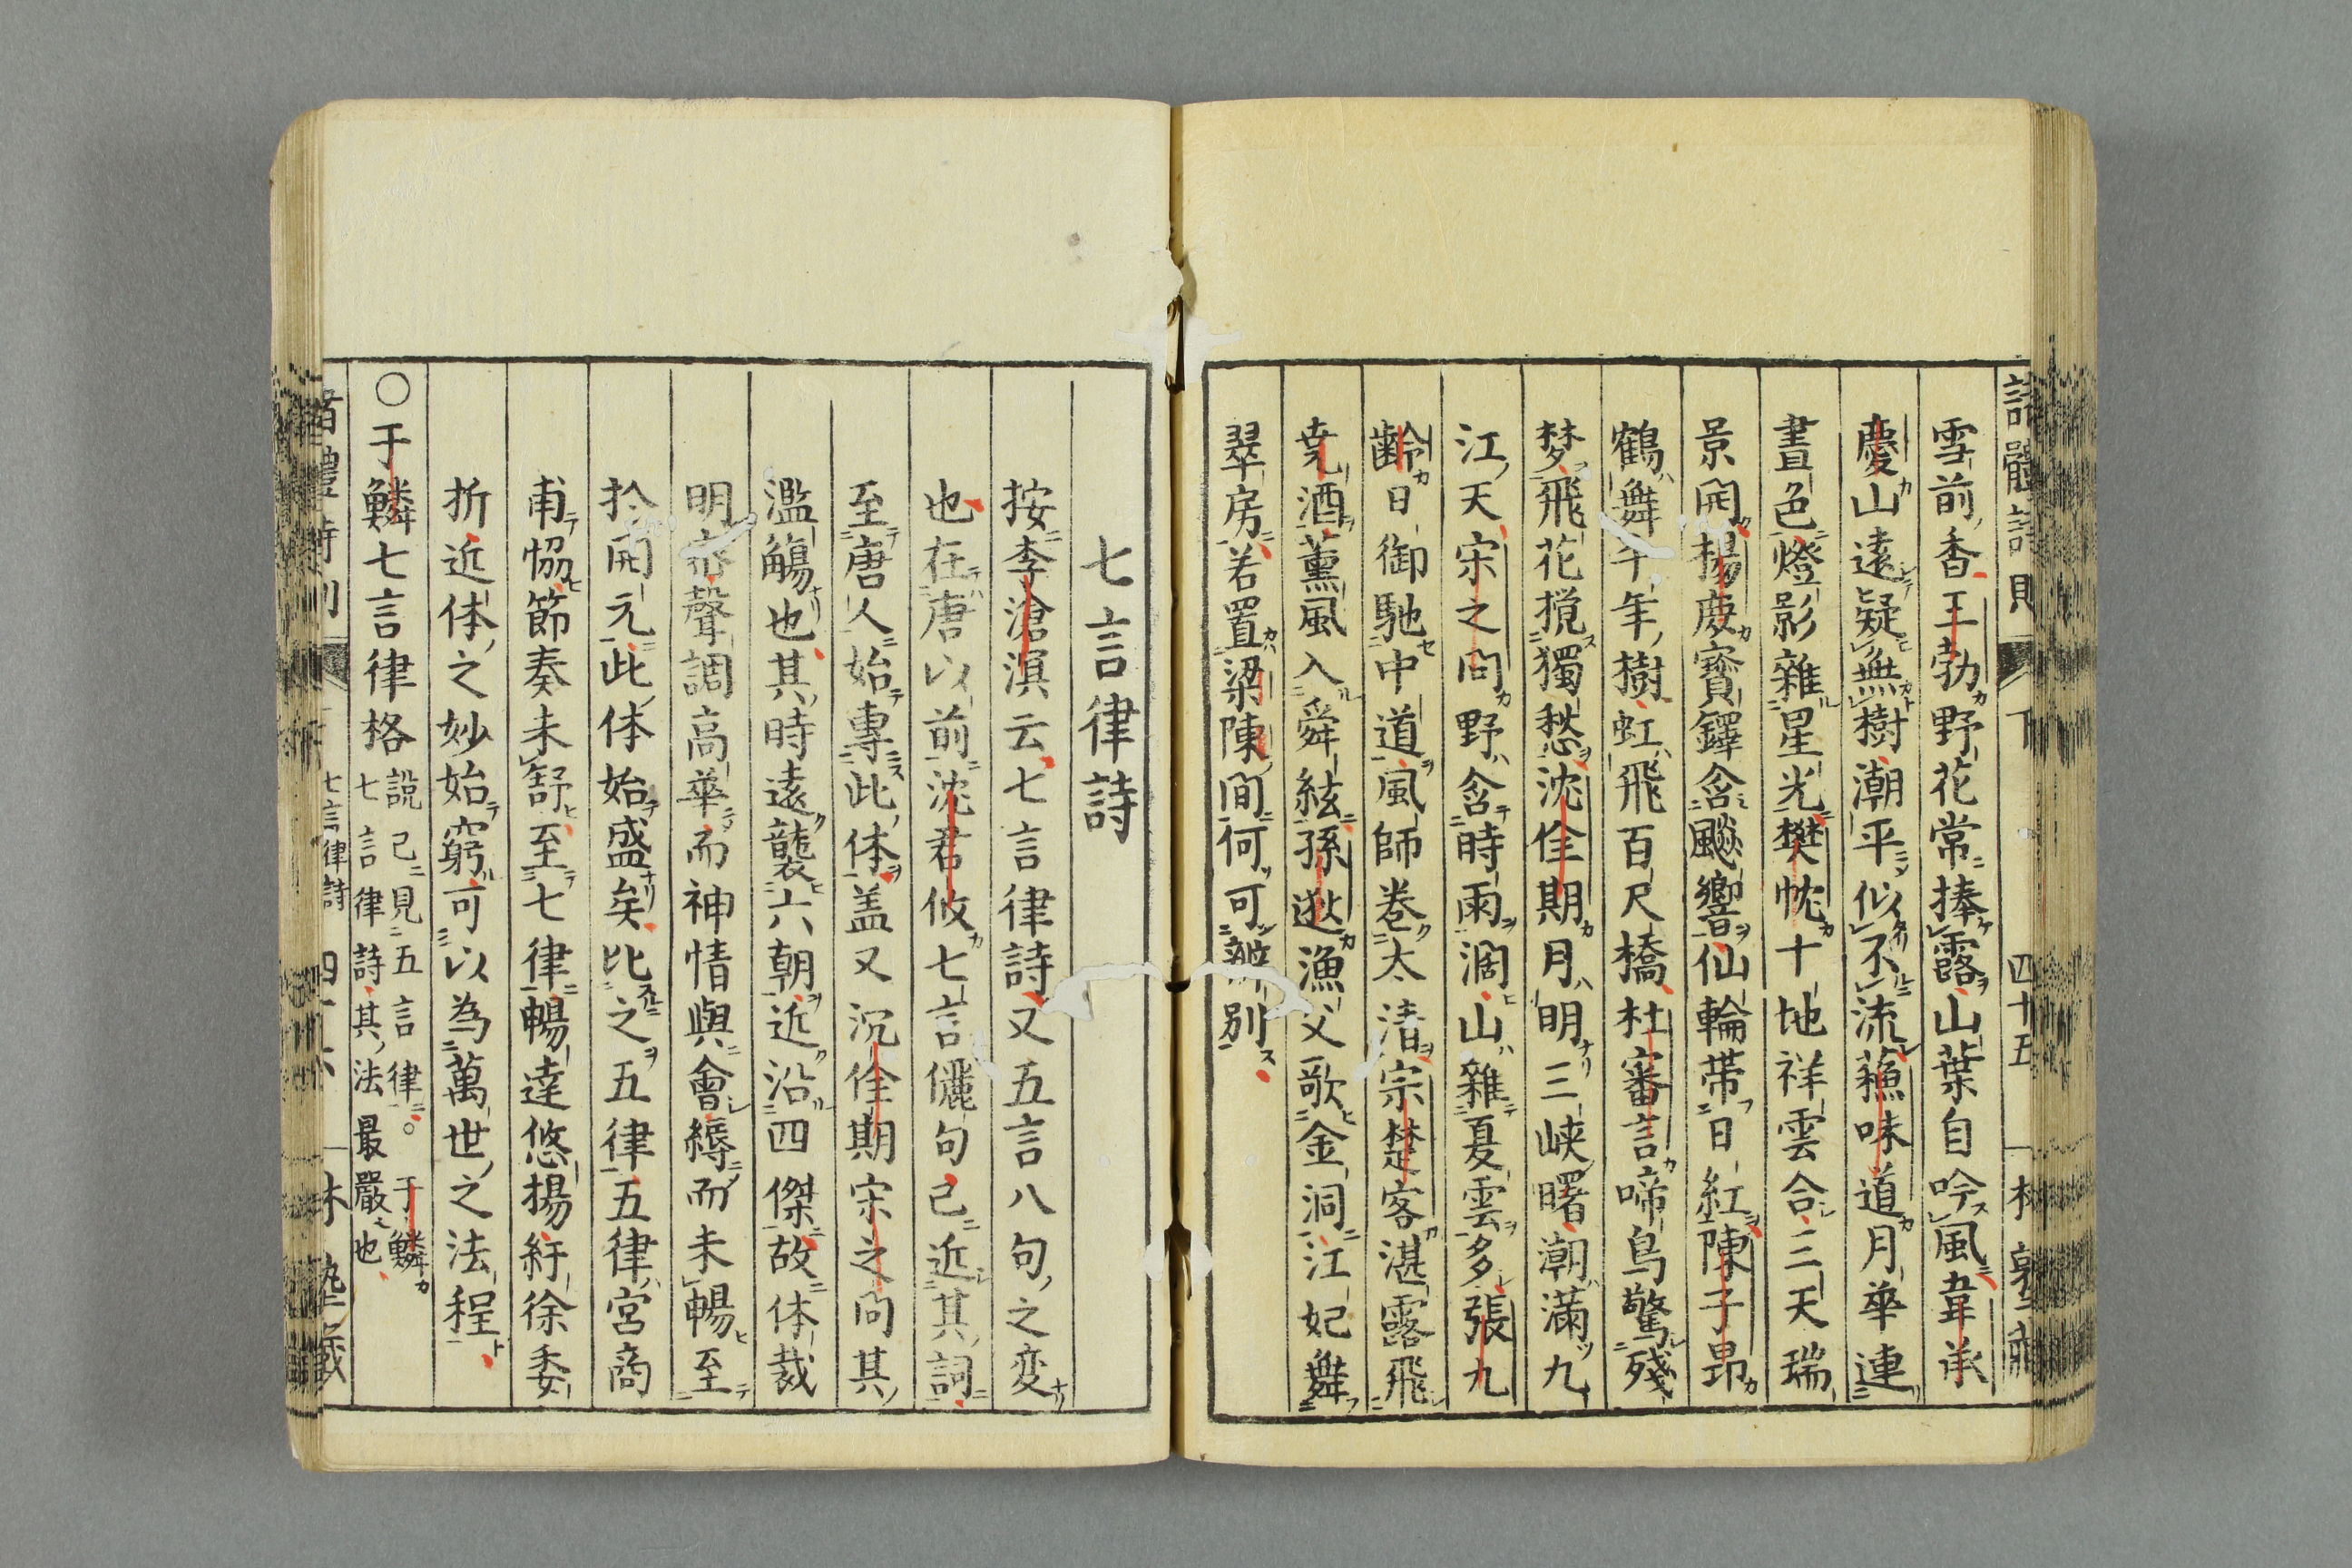 雪前香王勃野花常捧露山葉自吟風韋承
慶山遠疑無樹潮平似不流蘓味道月華連
晝色燈影雜星光樊忱十地祥雲合三天瑞
景開楊慶寳鐸含飇響仙輪帯日紅陳子昂
鶴舞千年樹虹飛百尺橋杜審言啼鳥驚殘
梦飛花撹獨愁沈佺期月明三峡曙潮満九
江天宋之問野含時雨潤山雜夏雲多張九
齢日御馳中道風師巻太清宗楚客湛露飛
尭酒薫風入舜絃孫逖漁父歌金洞江妃舞
翠房若置梁陳間何可辨別
七言律詩
按李滄溟云七言律詩又五言八句之変
也在唐以前沈君攸七言儷句已近其詞
至唐人始専此体盖又沉佺期宋之問其
濫觴也其時遠襲六朝近沿四傑故体裁
明密聲調高華而神情與會縟而未暢至
於開元此体始盛矣比之五律五律宮商
甫恊節奏未舒至七律暢達悠揚紆徐委
折近体之妙始窮可以為萬世之法程
〇于鱗七言律格
說已見五言律。于鱗
七言律詩其法最嚴也
七言律詩
四十五